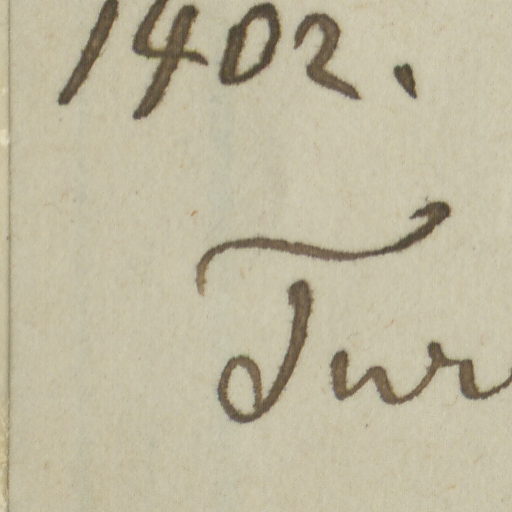 1402.
Tur